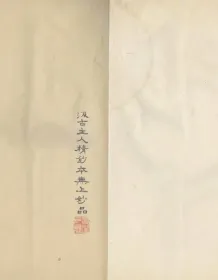 汲古主人精鈔本無上鈔品